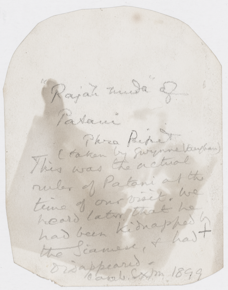 "Rajah muda" of
Patani
Phra Pipit
(taken by Gwynne Vaughan)
This was the actual
ruler of Patani at the
time of our visit. We
heard later that he
had been kidnapped by
the Siamese, & had
disappeared.
Exdn. 1899